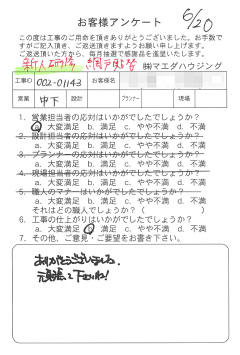 お客様アンケート
6/20
この度は工事のご用命を頂きありがとうございました。お手数で
すがご記入頂き、ご返送頂きますようお願い申し上げます。
ご返送頂いた方から、毎月抽選で感謝品を進呈いたします。
新人研修 網戸貼替 ㈱マエダハウジング
工事ID 002-01143 お客様名
営業 中下 設計 プランナー 現場
1. 営業担当者の応対はいかがでしたでしょうか?
a. 大変満足 b. 満足 c. やや不満 d. 不満
2. 設計担当者の応対はいかがでしたでしょうか?
a. 大変満足 b. 満足 c. やや不満 d. 不満
3. プランナーの応対はいかがでしたでしょうか?
a. 大変満足 b. 満足 c. やや不満 d. 不満
4. 現場担当者の応対はいかがでしたでしょうか?
a. 大変満足 b. 満足 c. やや不満 d. 不満
5. 職人のマナーはいかがでしたでしょうか?
a. 大変満足 b. 満足 c. やや不満 d. 不満
それはどの職人でしょうか?( )
6. 工事の仕上がりはいかがでしたでしょうか?
a. 大変満足 b. 満足 c. やや不満 d. 不満
7. その他、ご意見・ご要望をお書き下さい。
ありがとうございました。